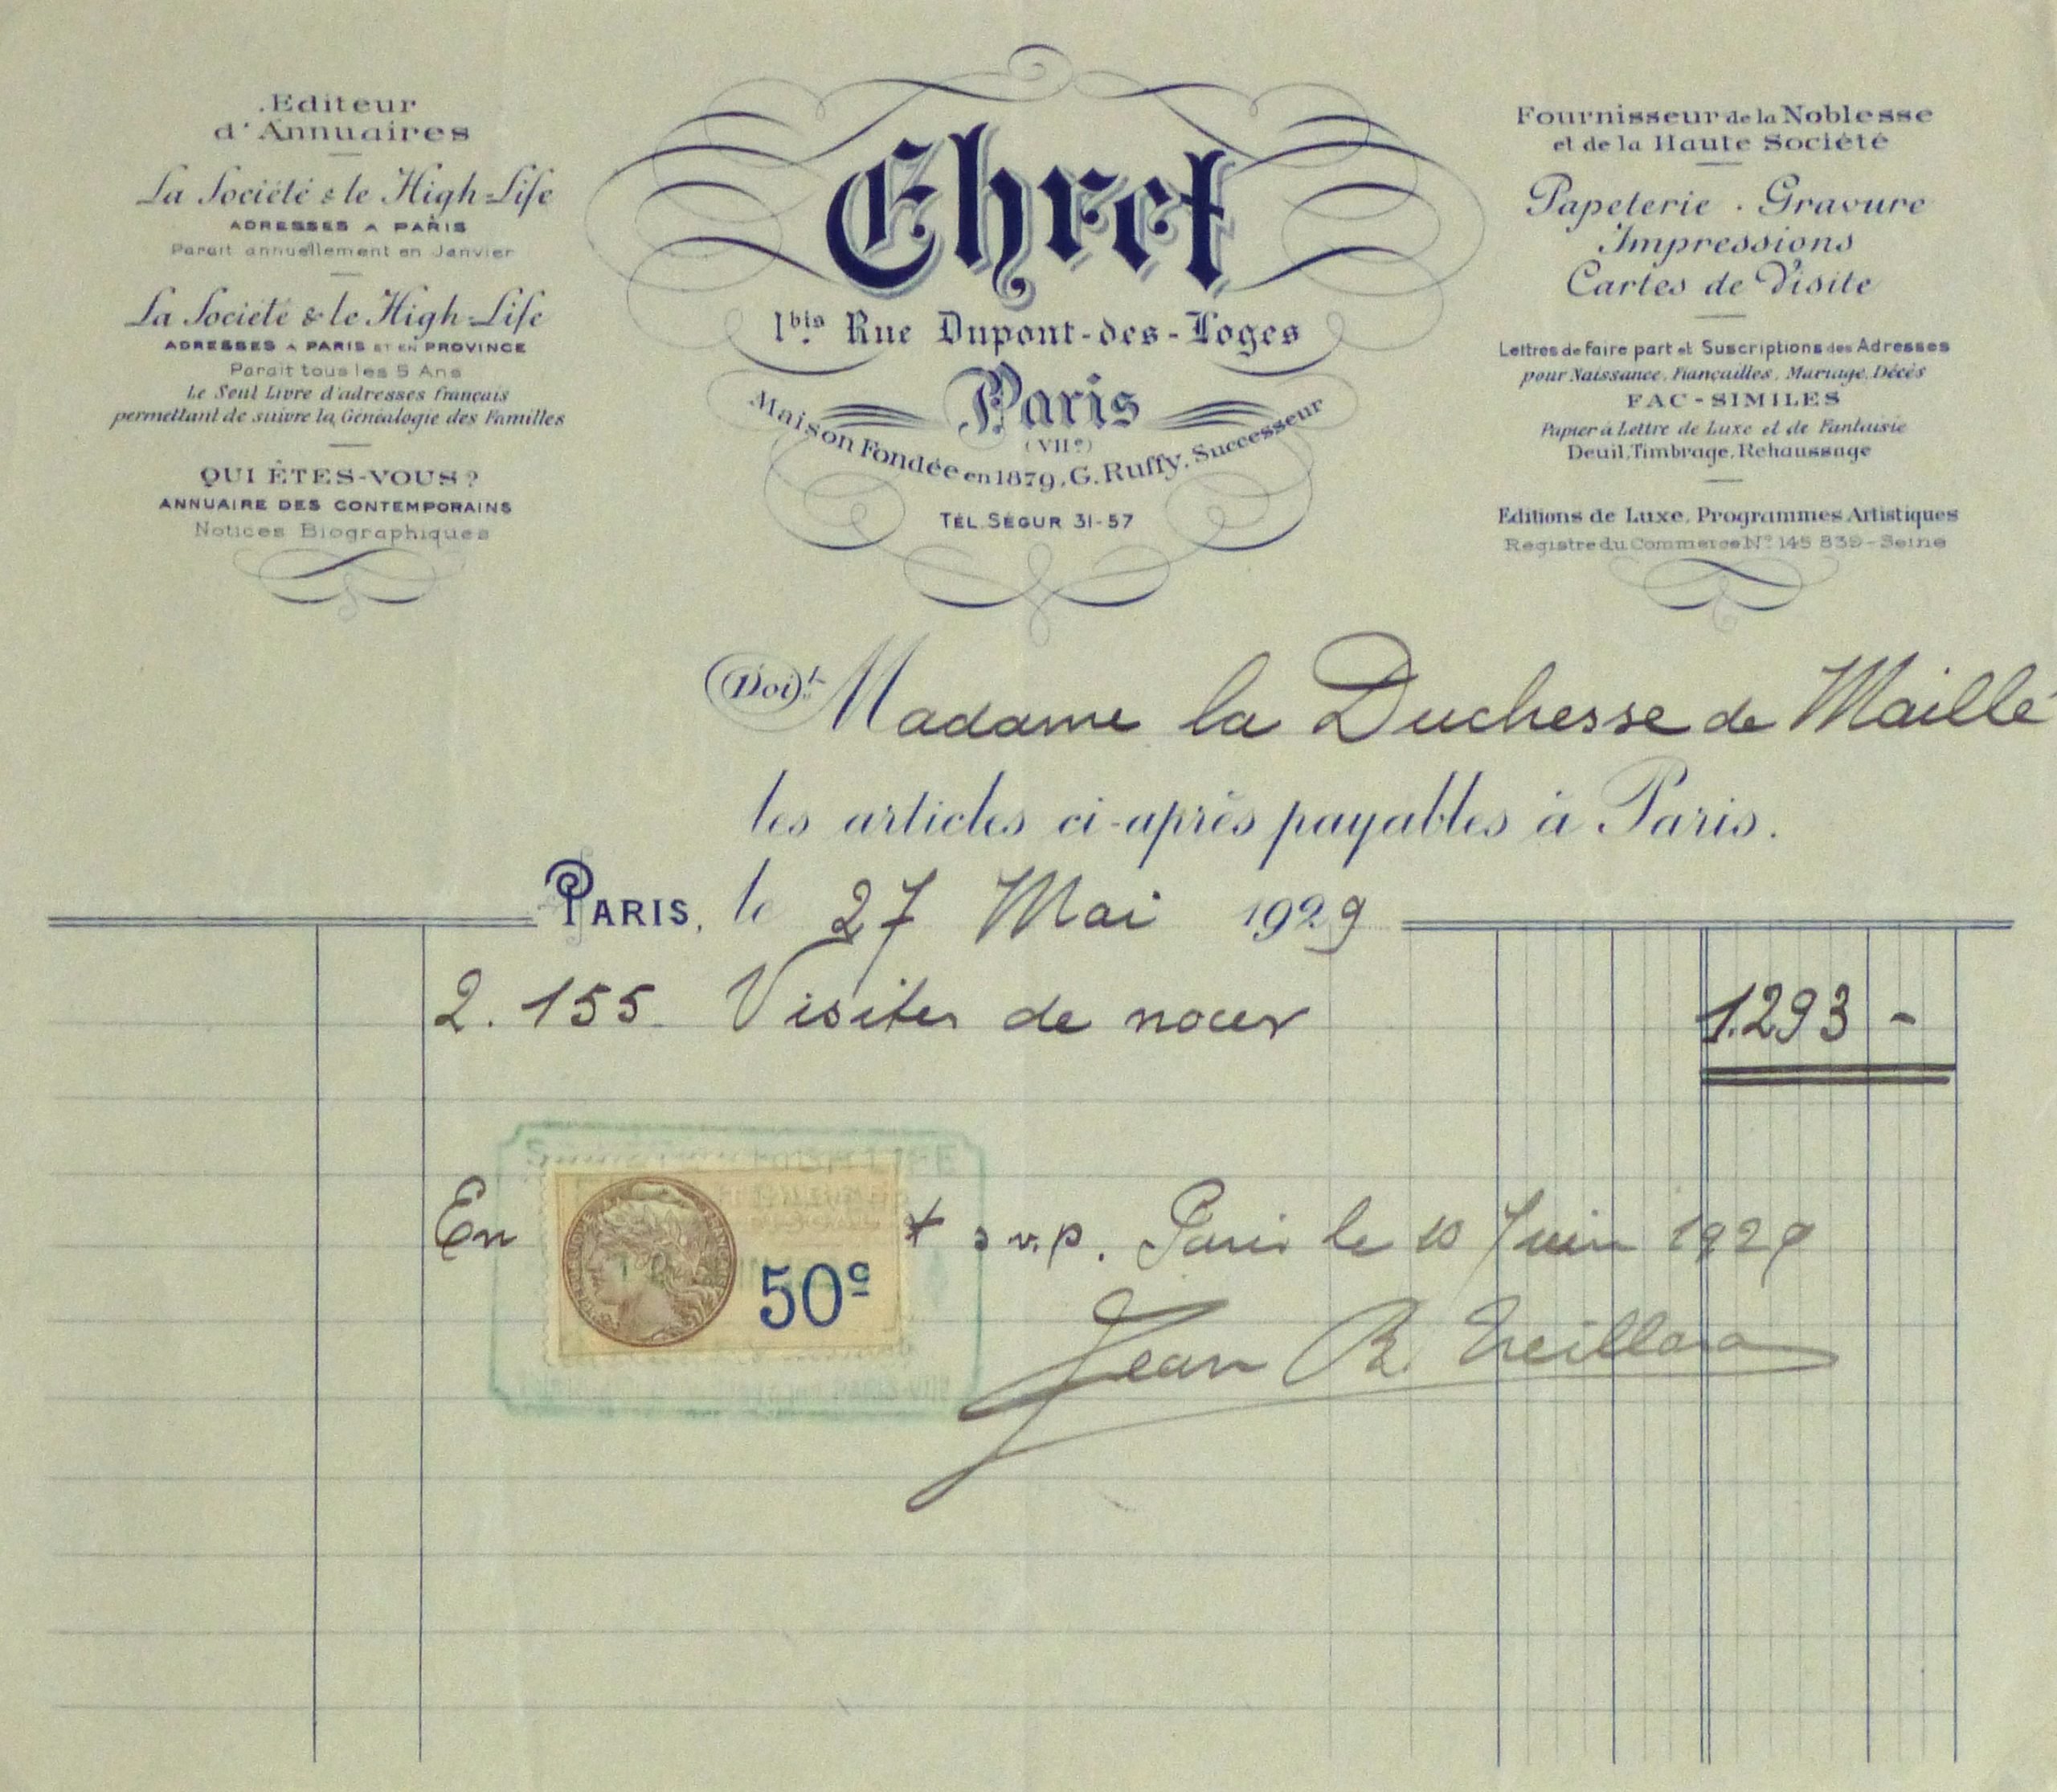 Editeur
d'Annuaires
La Société & le High-Life
ADRESSES A PARIS
Parait annuellement en Janvier
La Société & le High-Life
ADRESSES A PARIS ET EN PROVINCE
Parait tous les 5 Ans
Le Seul Livre d'adresses français
permettant de suivre la Généalogie des Familles
QUI ÊTES-VOUS?
ANNUAIRE DES CONTEMPORAINS
Notices Biographiques
Ehret
1bis. Rue Dupont-des-Loges
Paris
(VIIe)
Maison Fondée en 1879, G. Ruffy, Successeur
TÉL. SÉGUR 31-57
Fournisseur de la Noblesse
et de la Haute Société
Papeterie . Gravure
Impressions
Cartes de Visite
Lettres de faire part et Suscriptions des Adresses
pour Naissance, Fiançailles, Mariage, Décès
FAC-SIMILES
Papier à Lettre de Luxe et de Fantaisie
Deuil, Timbrage, Rehaussage
Editions de Luxe, Programmes Artistiques
Registre du Commerce No. 145 839 - Seine
Doit Madame la Duchesse de Maillé
les articles ci-après payables à Paris.
PARIS, le 27 Mai 1929
2.155. Visites de noces 1.293 -
En t s.v.p. Paris le 10 Juin 1929
50c
Jean R.